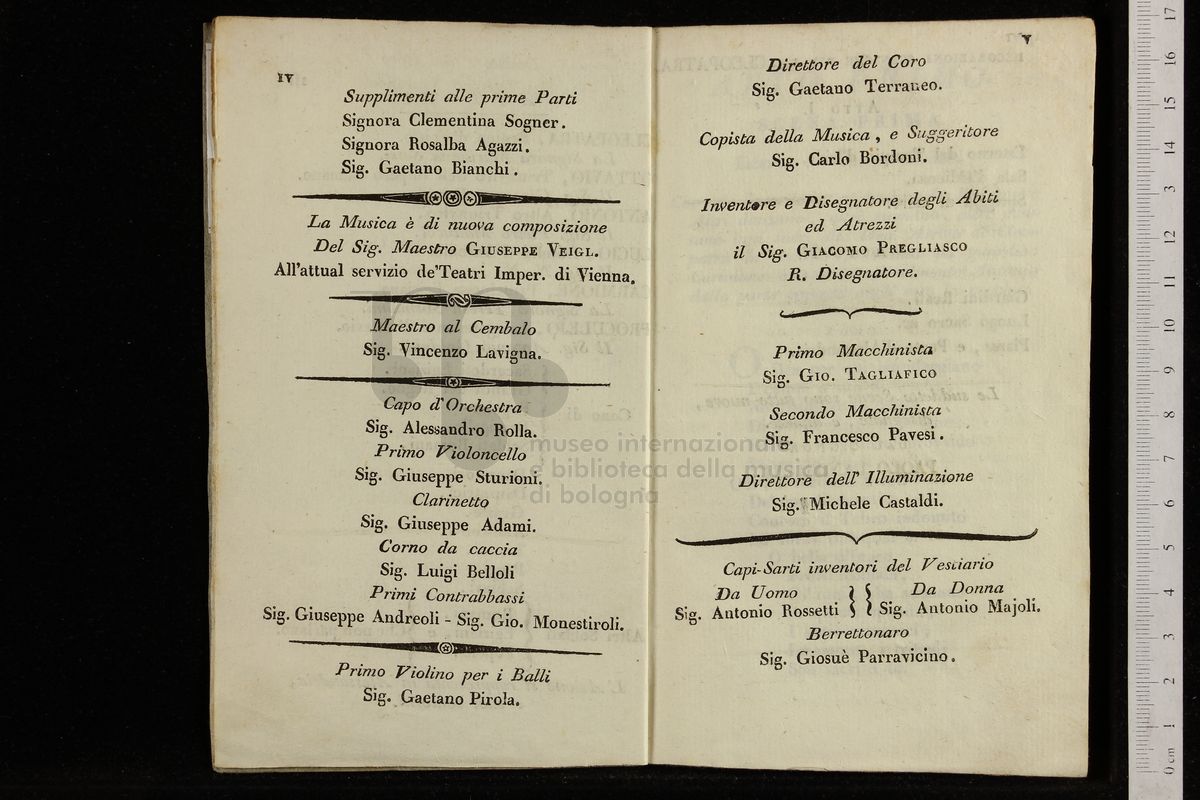 IV
Supplimenti alle prime Parti
Signora Clementina Sogner.
Signora Rosalba Agazzi.
Sig. Gaetano Bianchi.
La Musica è di nuova composizione
Del Sig. Maestro GIUSEPPE VEIGL.
All'attual servizio de'Teatri Imper. di Vienna.
Maestro al Cembalo
Sig. Vincenzo Lavigna.
Capo d'Orchestra
Sig. Alessandro Rolla.
Primo Violoncello
Sig. Giuseppe Sturioni.
Clarinetto
Sig. Giuseppe Adami.
Corno da caccia
Sig. Luigi Belloli
Primi Contrabbassi
Sig. Giuseppe Andreoli - Sig. Gio. Monestiroli.
Primo Violino per i Balli
Sig. Gaetano Pirola.
V
Direttore del Coro
Sig. Gaetano Terraneo.
Copista della Musica, e Suggeritore
Sig. Carlo Bordoni.
Inventore e Disegnatore degli Abiti
ed Atrezzi
il Sig. GIACOMO PREGLIASCO
R. Disegnatore.
Primo Macchinista
Sig. GIO. TAGLIAFICO
Secondo Macchinista
Sig. Francesco Pavesi.
Direttore dell' Illuminazione
Sig. Michele Castaldi.
Capi-Sarti inventori del Vestiario
Da Uomo Da Donna
Sig. Antonio Rossetti Sig. Antonio Majoli.
Berrettonaro
Sig. Giosuè Parravicino.
museo internazionale
e biblioteca della musica
di bologna
0 cm 1 2 3 4 5 6 7 8 9 10 11 12 13 14 15 16 17